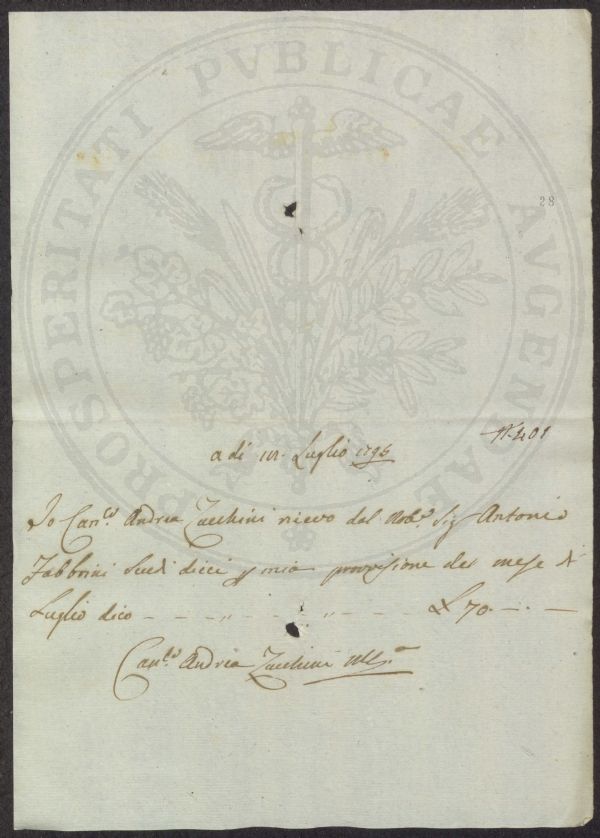 PROSPERITATI PVBLICAE AVGENDAE
28
N. 401
a dì Luglio 1795
Io Can.co Andrea Zucchini ricevo dal Nob.e Sig Antonio
Fabbrini Scudi dieci p mia provisione del mese di
Luglio dico - - - „ - - - „ - - - £ 70 - . -
Can.co Andrea Zucchini